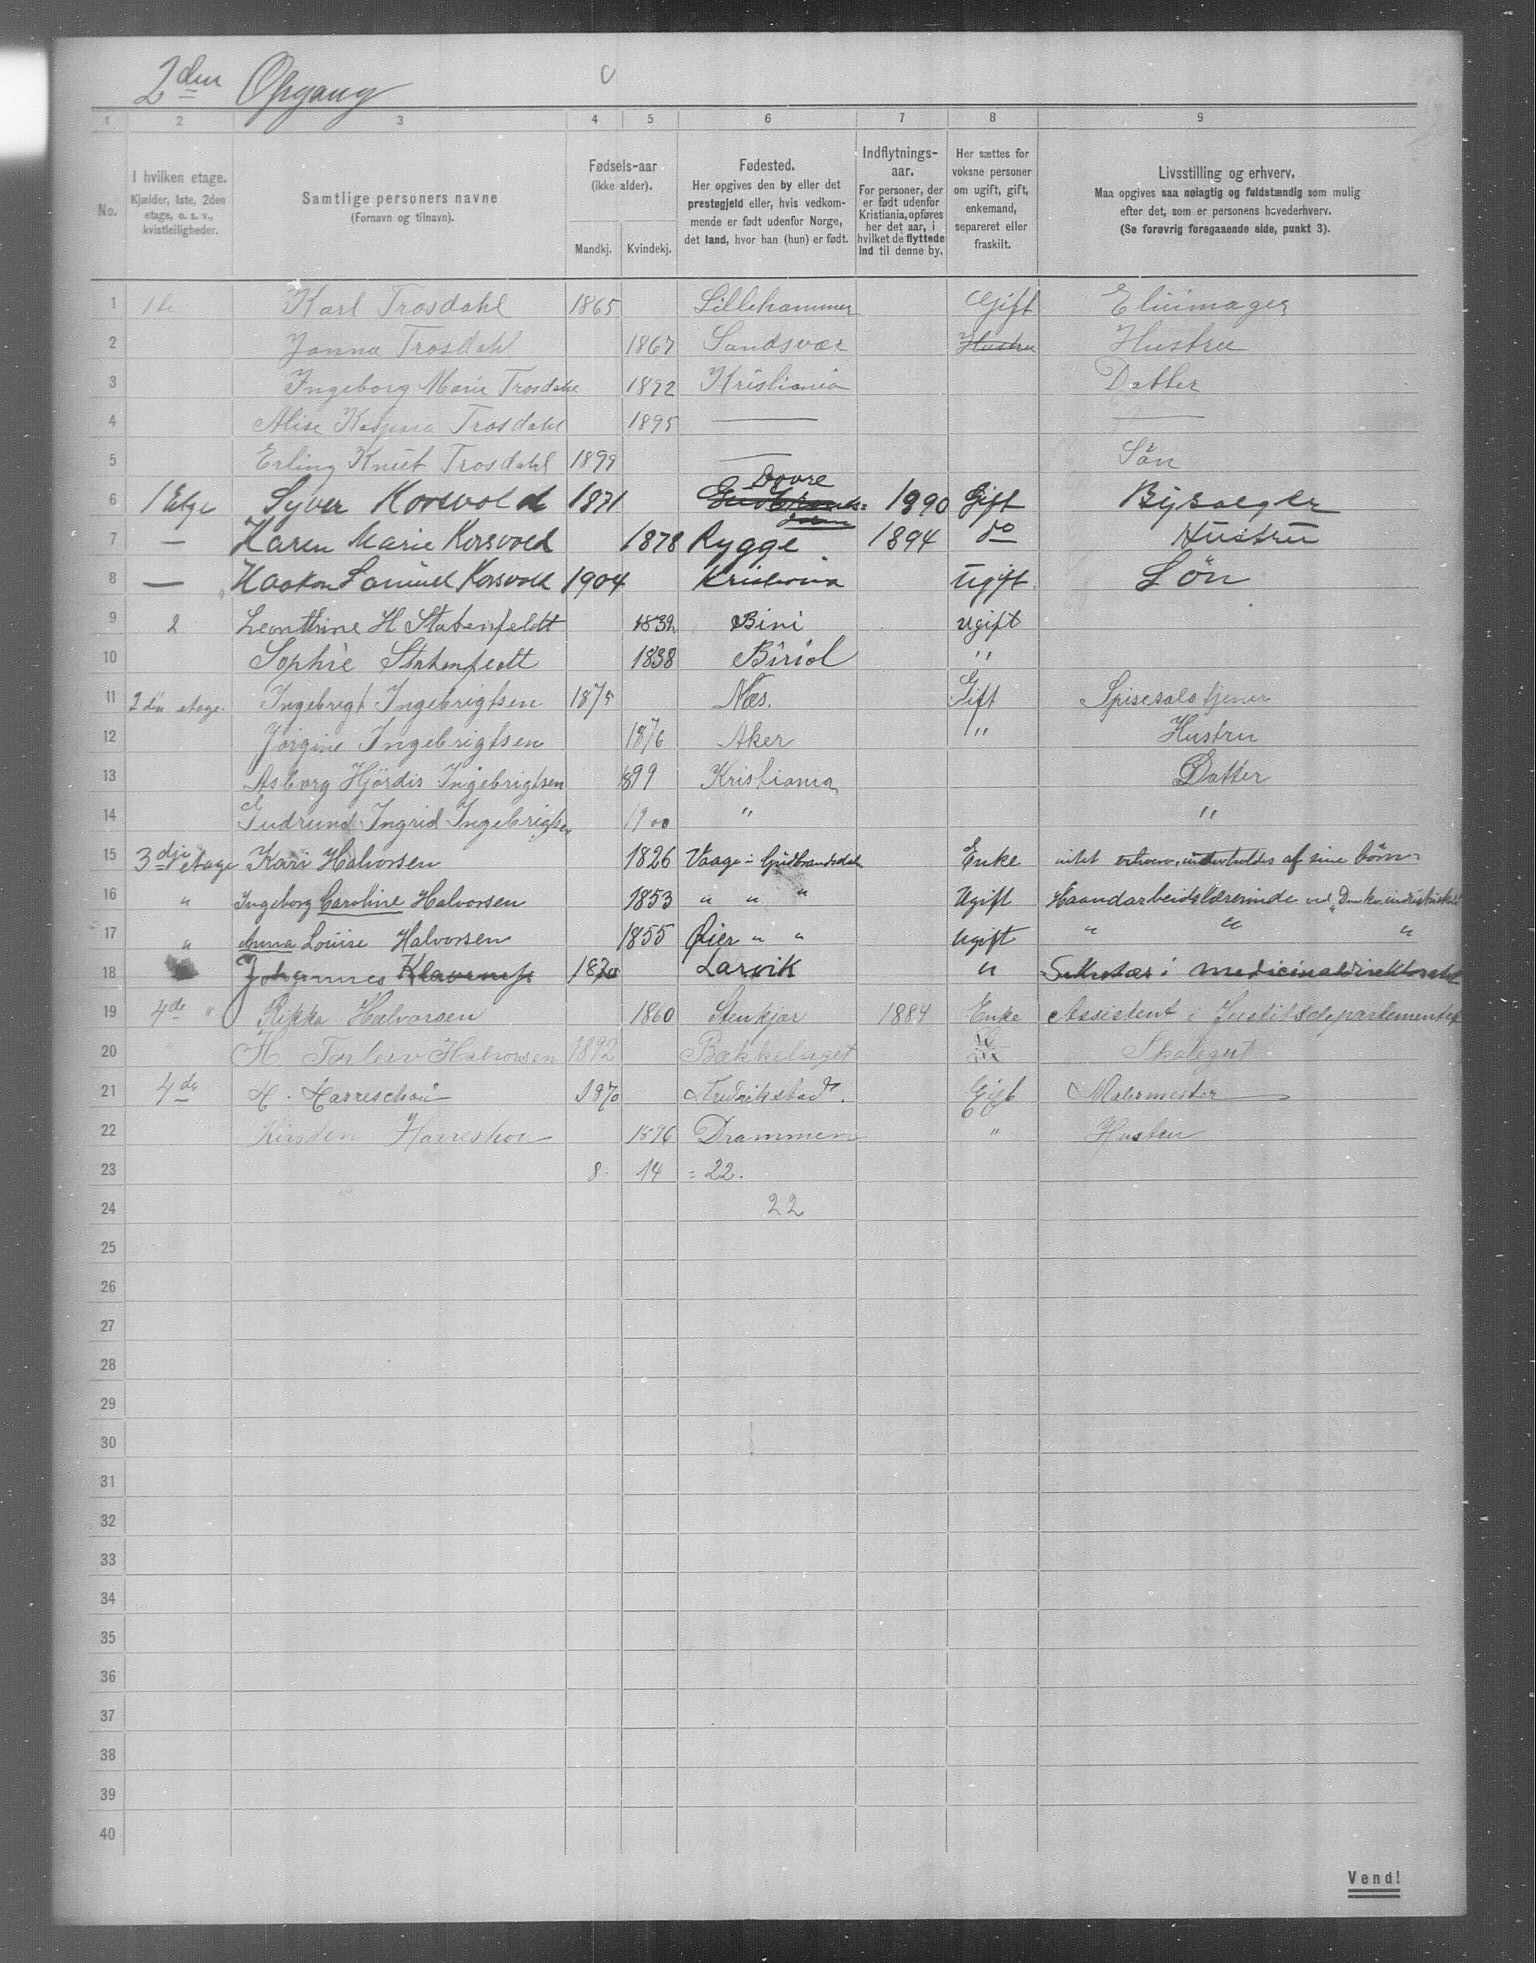 2den Opgang
1 2 3 4 5 6 7 8 9
No.
I hvilken etage.
Kjælder, 1ste, 2den
etage, o. s. v.,
kvistleiligheder.
Samtlige personers navne
(Fornavn og tilnavn).
Fødsels-aar
(ikke alder).
Mandkj. Kvindekj.
Fødested.
Her opgives den by eller det
prestegjeld eller, hvis vedkom-
mende er født udenfor Norge,
det land, hvor han (hun) er født.
Indflytnings-
aar.
For personer, der
er født udenfor
Kristiania, opføres
her det aar, i
hvilket de flyttede
ind til denne by.
Her sættes for
voksne personer
om ugift, gift,
enkemand,
separeret eller
fraskilt.
Livsstilling og erhverv.
Maa opgives saa nøiagtig og fuldstændig som mulig
efter det, som er personens hovederhverv.
(Se forøvrig foregaaende side, punkt 3).
1 1ste Karl Trosdahl 1865 Lillehammer Gift
2 Janna Trosdahl 1867 Sandsvær Hustru Hustru
3 Ingeborg Marie Trosdahl 1892 Kristiania Datter
4 Alise Kaspara Trosdahl 1895 —
5 Erling Knut Trosdahl 1899 — Søn
Dovre
6 1 Etge Syver Korsvold 1871 Gudbrands= 1890 Gift Bysælger
dalen
7 — Karen Marie Korsvold 1878 Rygge. 1894 do Hustru
8 — Haakon Samuel Korsvold 1904 Kristiania Ugift Søn
9 2 Leonthine H Stabenfeldt 1832 Biri ugift
10 Sophie Stabenfeldt 1838 Biriol "
11 2den etage. Ingebrigt Ingebrigtsen 1875 Næs. Gift Spisesalstjener
12 Jørgine Ingebrigtsen 1876 Aker " Hustru
13 Asborg Hjördis Ingebrigtsen 1899 Kristiania Datter
14 Gudrund Ingrid Ingebrigtsen 1900 " "
15 3dje etage Kari Halvorsen 1826 Vaage i Gudbrandsdalen Enke intet erhverv, underholdes af sine børn.
16 " Ingeborg Caroline Halvorsen 1853 " " " Ugift Haandarbeidslærerinde ved
17 " Anna Louise Halvorsen 1855 Øier " " Ugift " " "
18 Johannes Klavenes 1870 Larvik " Sekretær i Medicinaldirektoratet
19 4de " Rikka Halvorsen 1860 Stenkjær 1884 Enke Assistent i Justitsdepartementet
20 " H. Torleiv Halvorsen 1892 Bækkelaget Skolegut
21 4de H. Harreschou 1870 Fredrikstad. Gift Malermester
22 Kirsten Harreshou 1876 Drammen " Hustru
23 8. 14 = 22.
24 22
25
26
27
28
29
30
31
32
33
34
35
36
37
38
39
40
Vend!